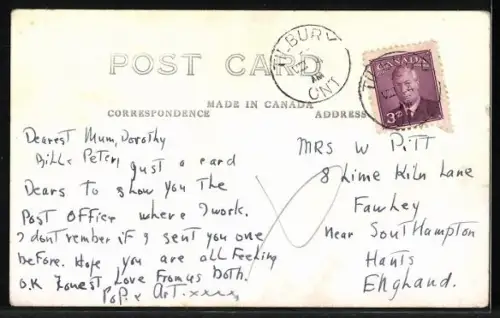 TILBURY
ONT
CANADA
3¢
POST CARD
MADE IN CANADA
CORRESPONDENCE
ADDRESS
Dearest Mum, Dorothy
Bills Peter, Just a card
Dears to show you the
Post Office where I work.
I dont rember if I sent you one
before. Hope you are all Feeling
O.K Love From us Both.
Pop. & Art. xxxx,
MRS W PITT
8 Lime Kiln Lane
Fawley
Near SoutHampton
Hants
England.